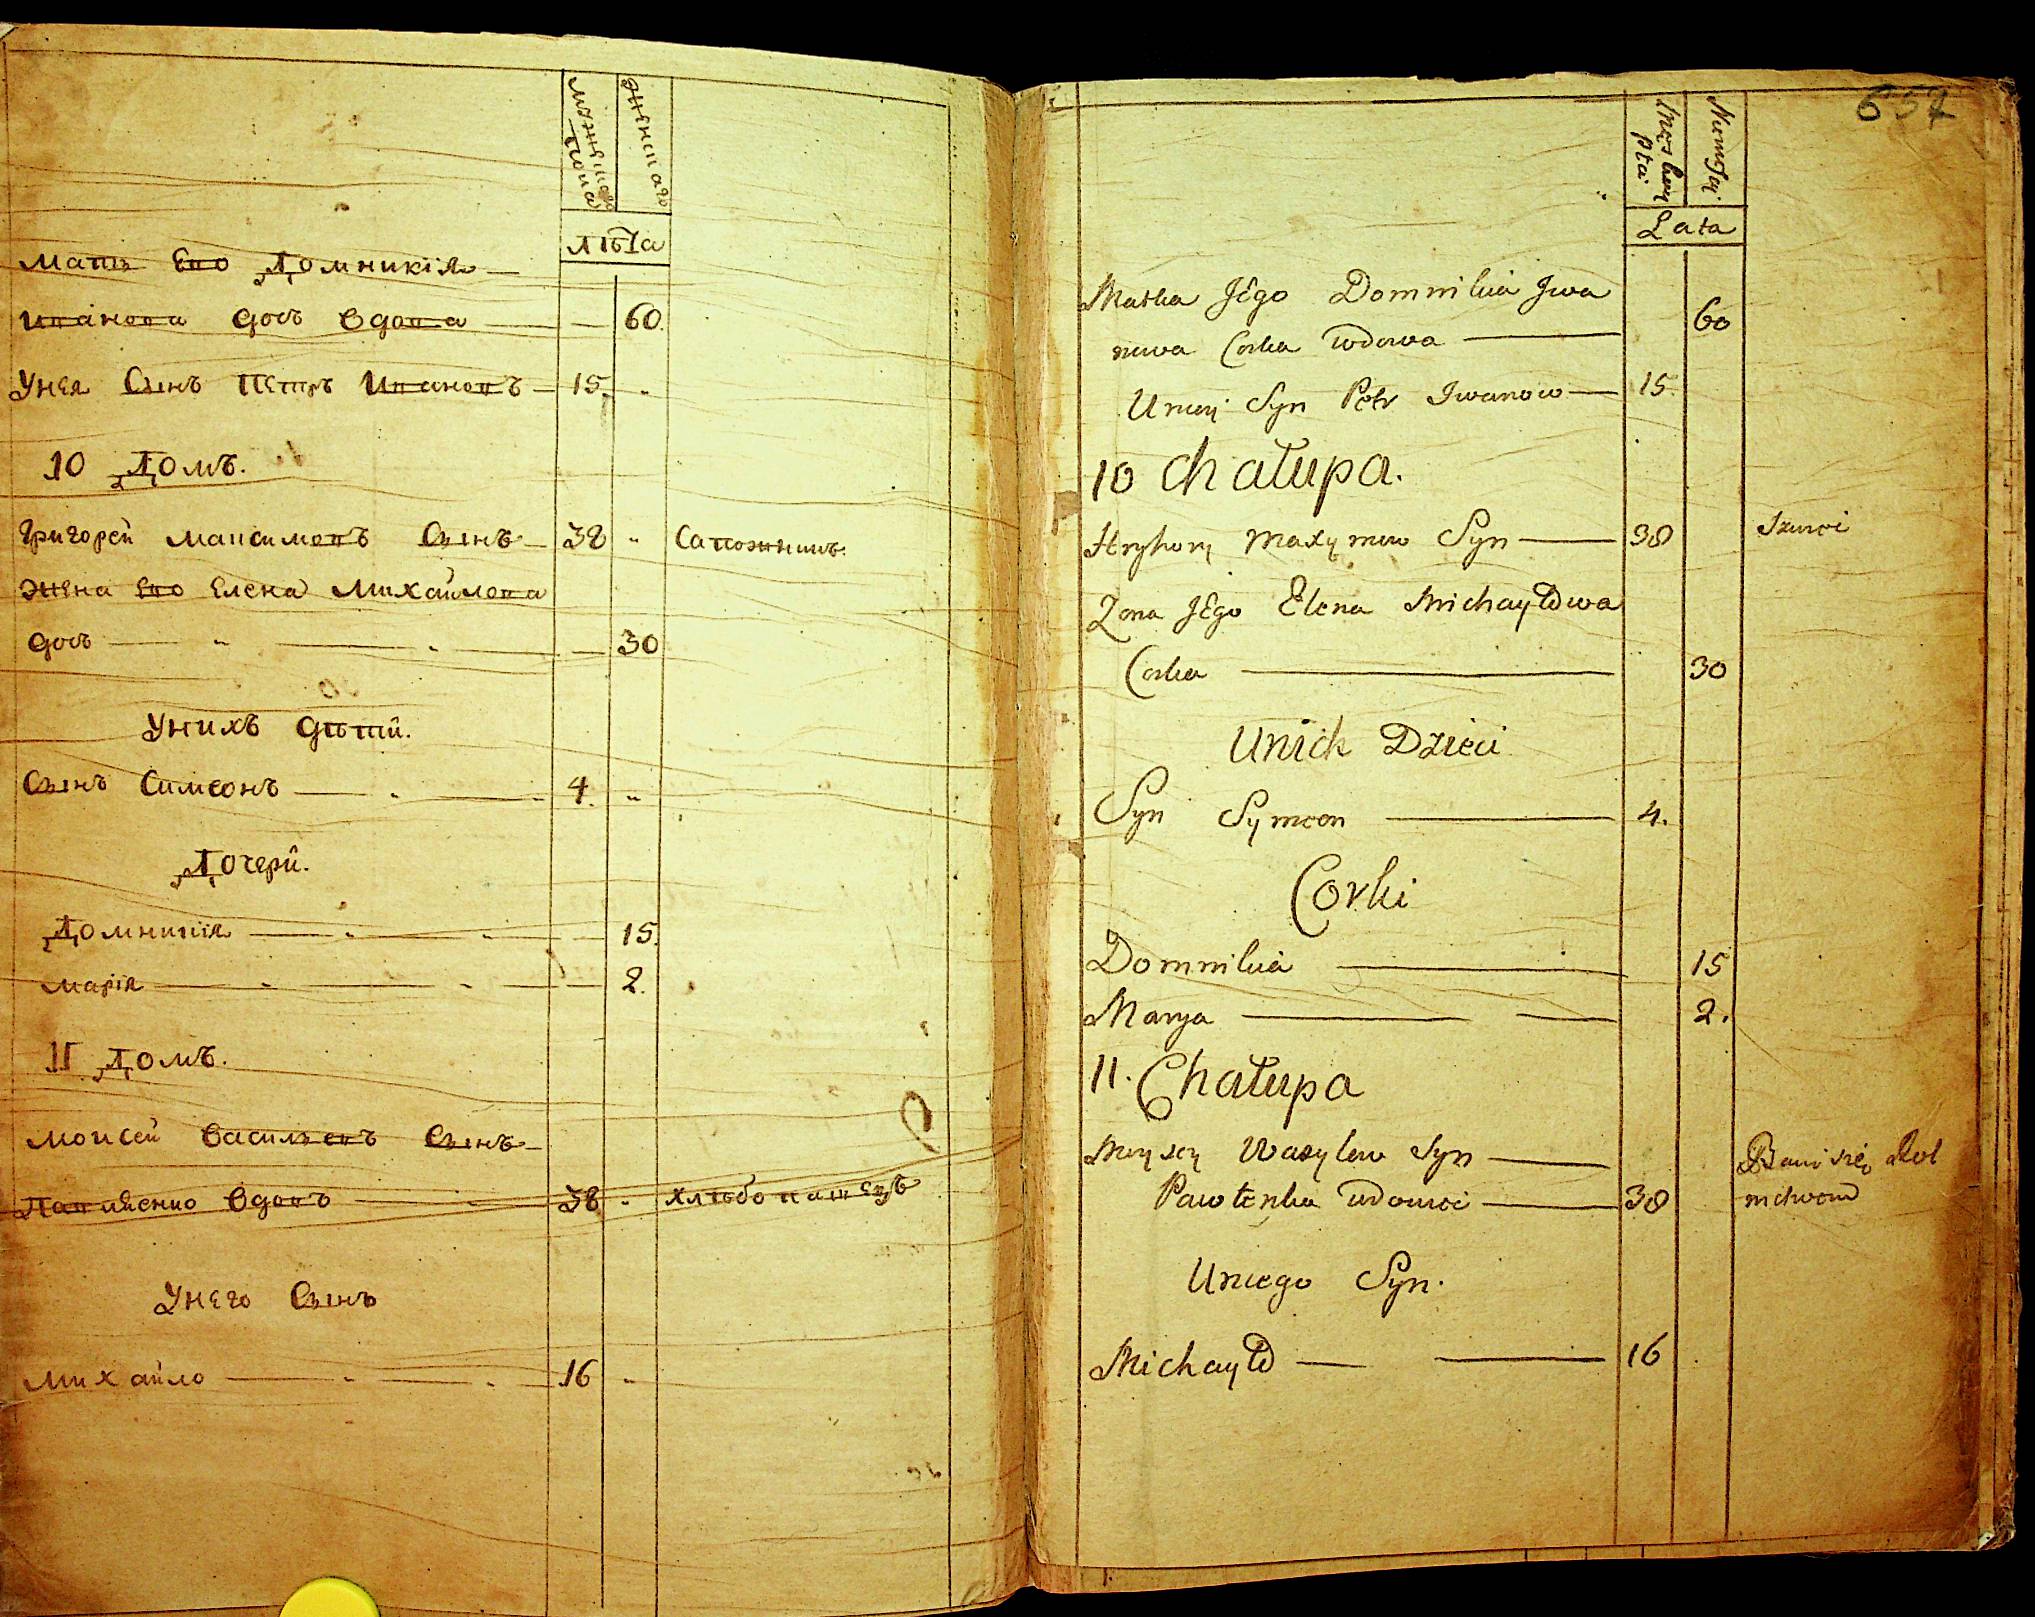 мужеска пола
женскаго
лѣта
мать Ево Домникія
Иванова дочь вдова 60.
Унея Сынъ Петръ Ивановъ 15. „
10 Домъ.
Григорей максимовъ Сынъ 38 „ Сапожникъ.
жена Ево Елена Михайлова
дочь „ „ 30
Унихъ дѣтй.
Сынъ Симеонъ „ 4. „
Дочерй.
Домникія „ „ 15.
марія „ „ 2.
11 Домъ.
моисей василъевъ Сынъ
Павленко вдовъ 38 „ хлѣбопашецъ
Унего Сынъ
михайло „ „ 16 „
657
Męskey płci
Lata
Matka JEgo Domnikia Jwa
nowa Corka wdowa 60
Uniey Syn Petr Iwanow 15.
10 Chałupa.
Hryhory Maxymow Syn 38 Szewc
Zona JEgo Elena Michayłowa
Corka 30
Unich Dzieci
Syn Symeon 4.
Corki
Domnikia 15
Marya 2.
11. Chałupa
Moysey Wasylew Syn Bawi się Rol
Pawłenko wdowiec 38 nictwem
Uniego Syn.
Michayło 16